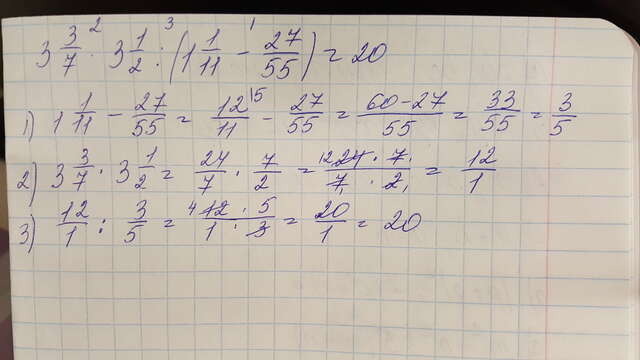 3 3/7 · 3 1/2 : (1 1/11 - 27/55) = 20
1) 1 1/11 - 27/55 = 12/11 - 27/55 = (60-27)/55 = 33/55 = 3/5
2) 3 3/7 · 3 1/2 = 24/7 · 7/2 = (24 · 7)/(7 · 2) = 12/1
3) 12/1 : 3/5 = (12 · 5)/(1 · 3) = 20/1 = 20